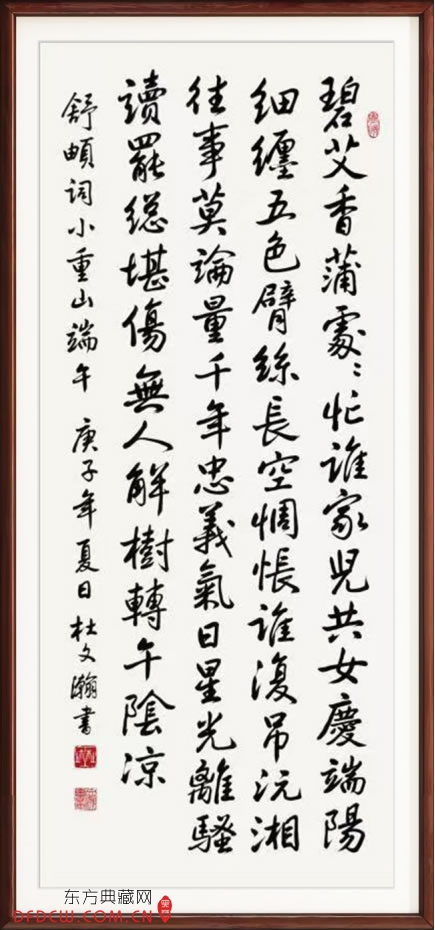 碧艾香蒲處〻忙誰家兒共女慶端陽
細纏五色臂絲長空惆悵誰復吊沅湘
往事莫論量千年忠義氣日星光離騷
讀罷總堪傷無人解樹轉午陰涼
舒頔詞小重山端午 庚子年夏日 杜文瀚書
东方典藏网
DFDCW.COM.CN